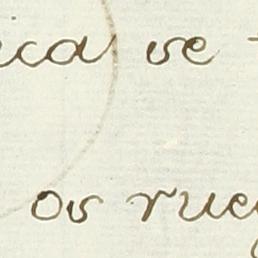 ica se
os rueg